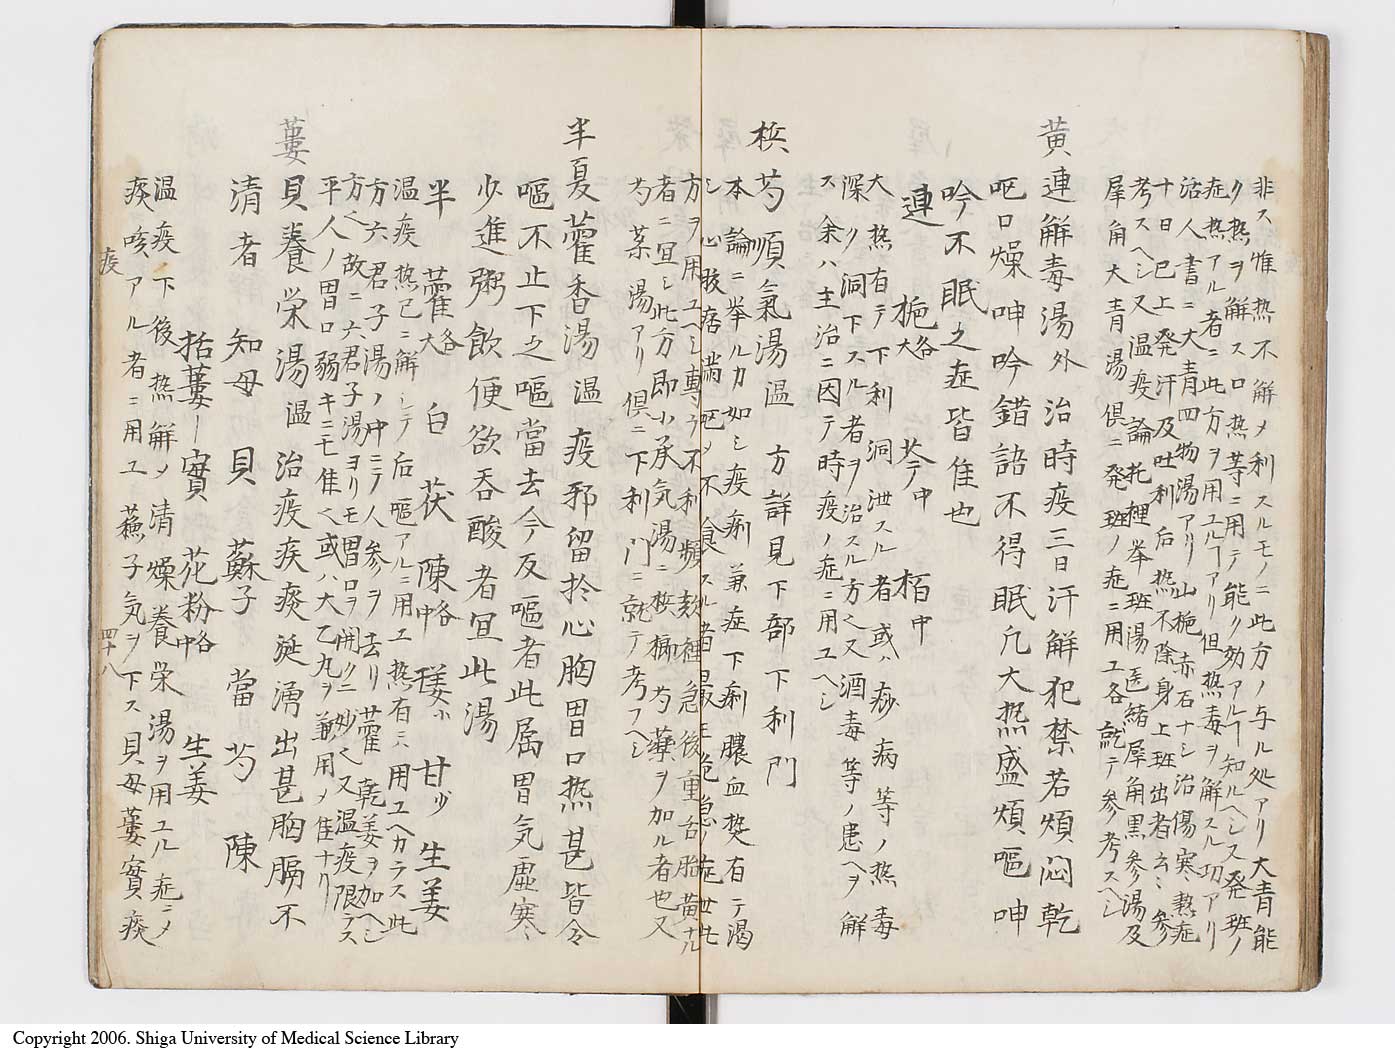 非ス惟熱不解メ利スルモノニ此方ノ与ル処アリ大青能
ク熱ヲ解スロ熱等ニ用テ能ク効アルヿ知ルヘシ又発斑ノ
症熱アル者ニ此方ヲ用ユルヿアリ但熱毒ヲ解スル功アリ
活人書ニ大青四物湯アリ山梔赤石ナシ治傷寒熱症
十日已上発汗及吐利后熱不除身上斑出者云〻参
考スヘシ又温疫論托裡挙斑湯医緒犀角黒参湯及
犀角大青湯倶ニ発斑ノ症ニ用ユ各就テ参考スヘシ
黄連解毒湯外 治時疫三日汗解犯禁若煩悶乾
呕口燥呻吟錯語不得眠凢大熱盛煩嘔呻
吟不眠之症皆隹也
連 梔各大 芩中 栢中
大熱有テ下利洞泄スル者或ハ痧病等ノ熱毒
深ク洞下スル者ヲ治スル方又酒毒等ノ患ヘヲ解
ス余ハ主治ニ因テ時疫ノ症ニ用ユヘシ
梹芍順氣湯温 方詳見下部下利門
本論ニ挙ルカ如シ疫痢兼症下痢膿血㷼有テ渇
シ心腹痞満呕メ不食スル者最モ危急ノ症世此
方ヲ用ユヘシ專ラ下利頻数裡急後重舌胎黄ナル
者ニ宜シ此方即小承気湯ニ梹榔芍藥ヲ加ル者也又
芍薬湯アリ倶ニ下利門ニ就テ考フヘシ
半夏藿香湯温 疫邪留於心胸胃口熱甚皆令
嘔不止下之嘔當去今反嘔者此属胃気虚寒〻
少進粥飲便欲吞酸者宜此湯
半 藿各大 白 茯 陳各中 䕪小 甘少 生姜
温疫熱已ニ解シテ后嘔アルニ用ユ熱有ニ用ユヘカラス此
方六君子湯ノ中ニテ人参ヲ去リ藿乾姜ヲ加ヘシ
方也故ニ六君子湯ヨリモ胃口ヲ開クニ妙也又温疫限ラス
平人ノ胃口弱キニモ隹也或ハ大乙丸ヲ兼用メ隹ナリ
蔞貝養栄湯温 治疫疾痰涎湧出甚胸膈不
清者 知母 貝 蘇子 當 芍 陳
括蔞ー實 花粉各中 生姜
温疫下後熱解メ清燥養栄湯ヲ用ユル症ニメ
痰咳アル者ニ用ユ蘓子気ヲ下ス貝母蔞實痰
疫 四十八
Copyright 2006. Shiga University of Medical Science Library